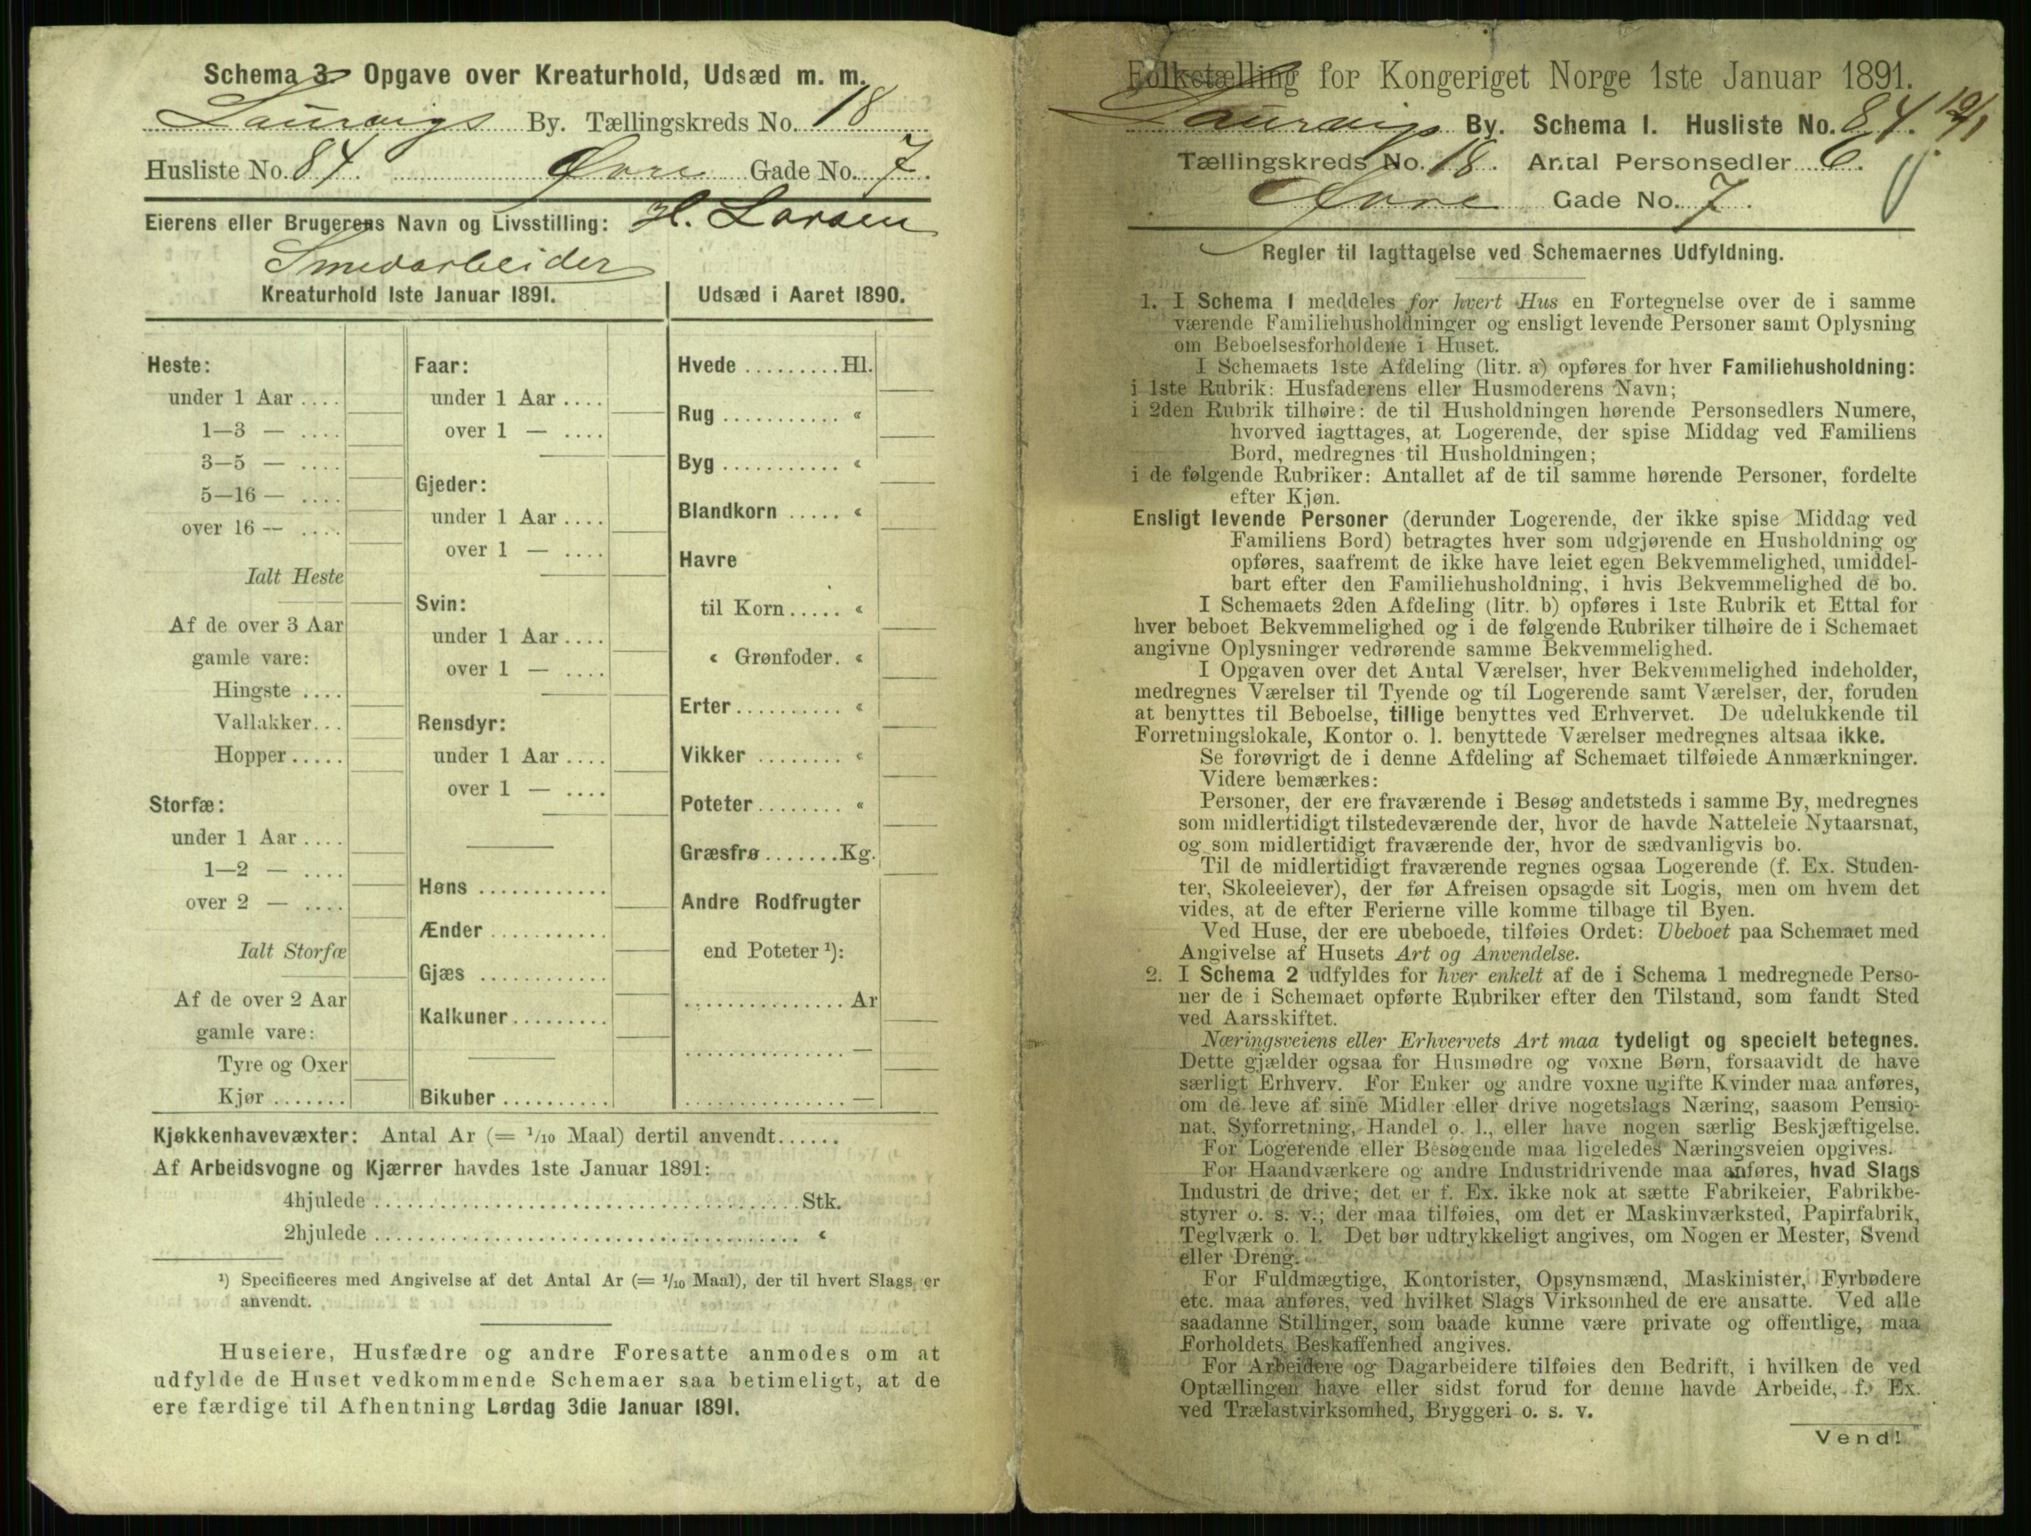 Schema 3. Opgave over Kreaturhold, Udsæd m. m.
Laurvigs By. Tællingskreds No. 18
Husliste No. 84. Øvre Gade No. 7.
Eierens eller Brugerens Navn og Livsstilling: H. Larsen
Smedarbeider
Kreaturhold 1ste Januar 1891.
Heste:
under 1 Aar ....
1—3 — ....
3—5 — ....
5—16 — ....
over 16 — ....
Ialt Heste
Af de over 3 Aar
gamle vare:
Hingste ....
Vallakker...
Hopper.....
Storfæ:
under 1 Aar ....
1—2 — ....
over 2 — ....
Ialt Storfæ
Af de over 2 Aar
gamle vare:
Tyre og Oxer
Kjør .......
Faar:
under 1 Aar ....
over 1 — ....
Gjeder:
under 1 Aar ....
over 1 — ....
Svin:
under 1 Aar ....
over 1 — ....
Rensdyr:
under 1 Aar ....
over 1 — ....
Høns ............
Ænder ...........
Gjæs ............
Kalkuner.........
Bikuber ..........
Udsæd i Aaret 1890.
Hvede .........Hl.
Rug ........... «
Byg ........... «
Blandkorn ..... «
Havre
til Korn..... «
« Grønfoder. «
Erter.......... «
Vikker ........ «
Poteter........ «
Græsfrø.......Kg.
Andre Rodfrugter
end Poteter ¹):
............... Ar
............... —
............... —
Kjøkkenhavevæxter: Antal Ar (= 1/10 Maal) dertil anvendt......
Af Arbeidsvogne og Kjærrer havdes 1ste Januar 1891:
4hjulede ........................................Stk.
2hjulede ........................................ «
¹) Specificeres med Angivelse af det Antal Ar (= 1/10 Maal), der til hvert Slags er
anvendt.
Huseiere, Husfædre og andre Foresatte anmodes om at
udfylde de Huset vedkommende Schemaer saa betimeligt, at de
ere færdige til Afhentning Lørdag 3die Januar 1891.
Folketælling for Kongeriget Norge 1ste Januar 1891.
Laurvigs By. Schema 1. Husliste No. 84.
Tællingskreds No. 18. Antal Personsedler 6.
Øvre Gade No. 7.
Regler til Iagttagelse ved Schemaernes Udfyldning.
1. I Schema 1 meddeles for hvert Hus en Fortegnelse over de i samme
værende Familiehusholdninger og ensligt levende Personer samt Oplysning
om Beboelsesforholdene i Huset.
I Schemaets 1ste Afdeling (litr. a) opføres for hver Familiehusholdning:
i 1ste Rubrik: Husfaderens eller Husmoderens Navn;
i 2den Rubrik tilhøire: de til Husholdningen hørende Personsedlers Numere,
hvorved iagttages, at Logerende, der spise Middag ved Familiens
Bord, medregnes til Husholdningen;
i de følgende Rubriker: Antallet af de til samme hørende Personer, fordelte
efter Kjøn.
Ensligt levende Personer (derunder Logerende, der ikke spise Middag ved
Familiens Bord) betragtes hver som udgjørende en Husholdning og
opføres, saafremt de ikke have leiet egen Bekvemmelighed, umiddel-
bart efter den Familiehusholdning, i hvis Bekvemmelighed de bo.
I Schemaets 2den Afdeling (litr. b) opføres i 1ste Rubrik et Ettal for
hver beboet Bekvemmelighed og i de følgende Rubriker tilhøire de i Schemaet
angivne Oplysninger vedrørende samme Bekvemmelighed.
I Opgaven over det Antal Værelser, hver Bekvemmelighed indeholder,
medregnes Værelser til Tyende og til Logerende samt Værelser, der, foruden
at benyttes til Beboelse, tillige benyttes ved Erhvervet. De udelukkende til
Forretningslokale, Kontor o. l. benyttede Værelser medregnes altsaa ikke.
Se forøvrigt de i denne Afdeling af Schemaet tilføiede Anmærkninger.
Videre bemærkes:
Personer, der ere fraværende i Besøg andetsteds i samme By, medregnes
som midlertidigt tilstedeværende der, hvor de havde Natteleie Nytaarsnat,
og som midlertidigt fraværende der, hvor de sædvanligvis bo.
Til de midlertidigt fraværende regnes ogsaa Logerende (f. Ex. Studen-
ter, Skoleelever), der før Afreisen opsagde sit Logis, men om hvem det
vides, at de efter Ferierne ville komme tilbage til Byen.
Ved Huse, der ere ubeboede, tilføies Ordet: Ubeboet paa Schemaet med
Angivelse af Husets Art og Anvendelse.
2. I Schema 2 udfyldes for hver enkelt af de i Schema 1 medregnede Perso-
ner de i Schemaet opførte Rubriker efter den Tilstand, som fandt Sted
ved Aarsskiftet.
Næringsveiens eller Erhvervets Art maa tydeligt og specielt betegnes.
Dette gjælder ogsaa for Husmødre og voxne Børn, forsaavidt de have
særligt Erhverv. For Enker og andre voxne ugifte Kvinder maa anføres,
om de leve af sine Midler eller drive nogetslags Næring, saasom Pensio-
nat, Syforretning, Handel o. l., eller have nogen særlig Beskjæftigelse.
For Logerende eller Besøgende maa ligeledes Næringsveien opgives.
For Haandværkere og andre Industridrivende maa anføres, hvad Slags
Industri de drive; det er f. Ex. ikke nok at sætte Fabrikeier, Fabrikbe-
styrer o. s. v.; der maa tilføies, om det er Maskinværksted, Papirfabrik,
Teglværk o. l. Det bør udtrykkeligt angives, om Nogen er Mester, Svend
eller Dreng.
For Fuldmægtige, Kontorister, Opsynsmænd, Maskinister, Fyrbødere
etc. maa anføres, ved hvilket Slags Virksomhed de ere ansatte. Ved alle
saadanne Stillinger, som baade kunne være private og offentlige, maa
Forholdets Beskaffenhed angives.
For Arbeidere og Dagarbeidere tilføies den Bedrift, i hvilken de ved
Optællingen have eller sidst forud for denne havde Arbeide, f. Ex.
ved Trælastvirksomhed, Bryggeri o. s. v.
Vend!